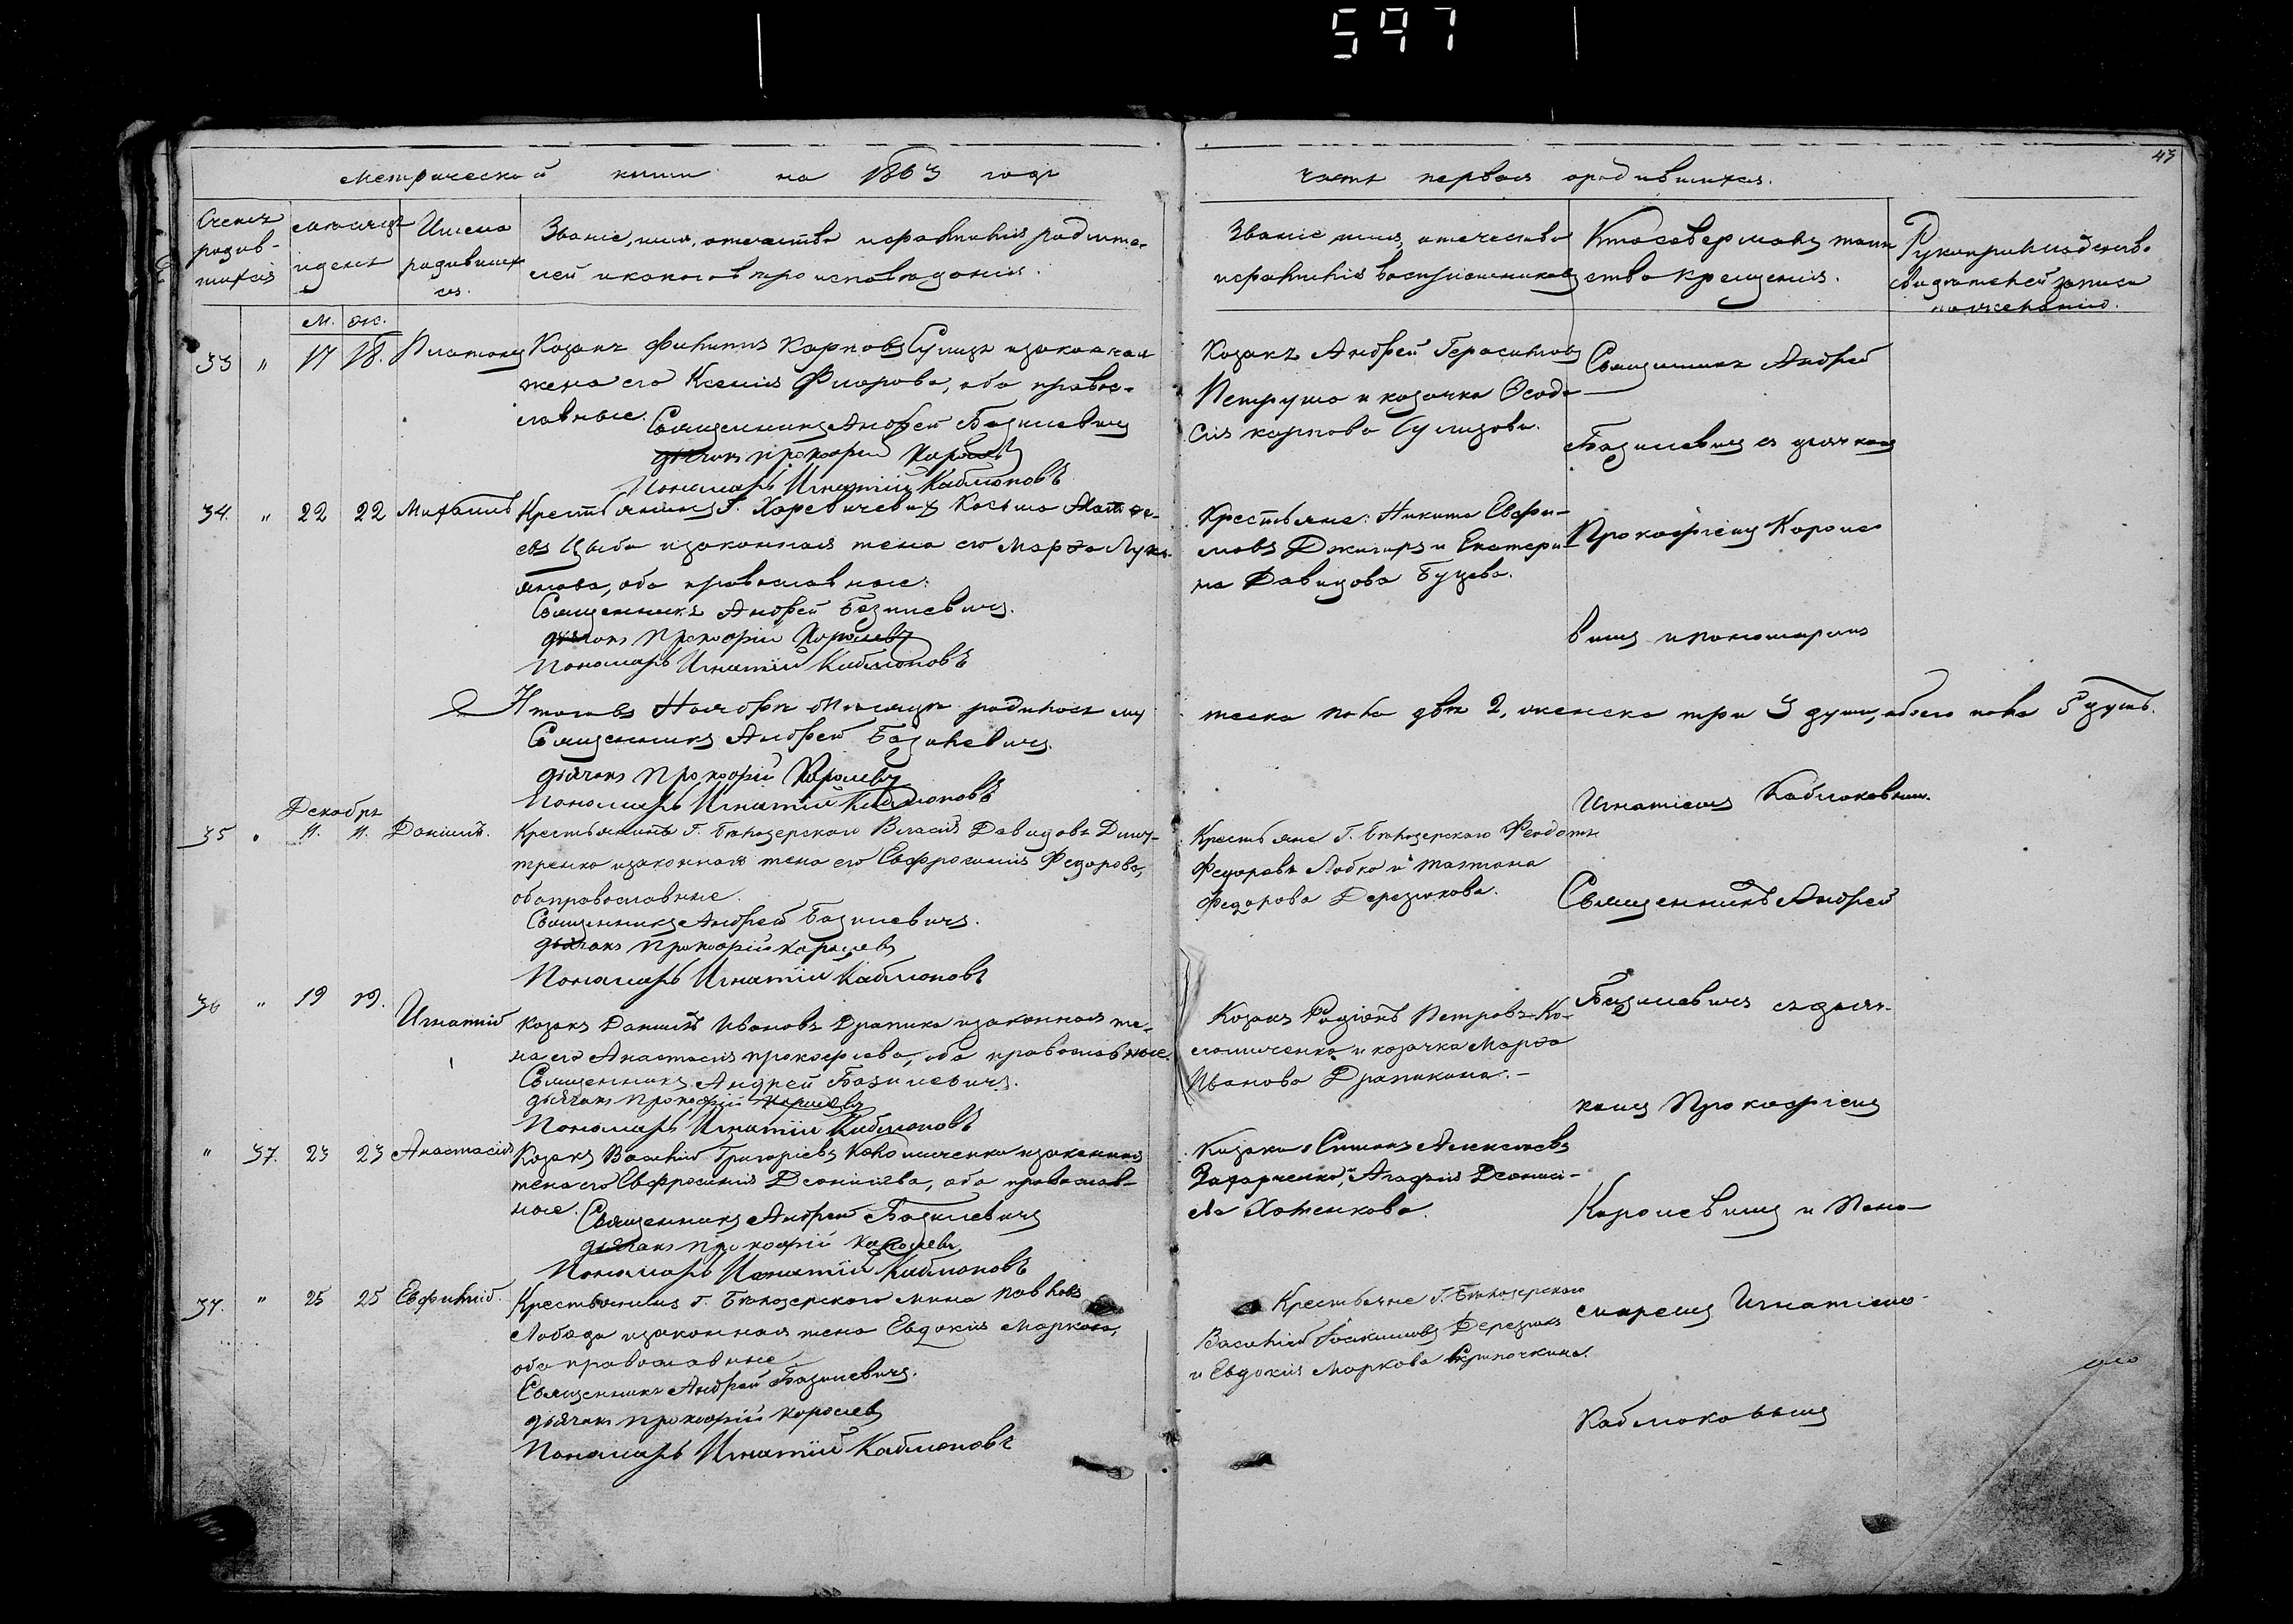 597
43
Метрической книги на 1863 годъ
часть первая о родившихся.
Счетъ родив-шихся
мѣсяцъ и день
Имена родившихся.
Званіе, имя, отчество и фамилія родите-
лей и какого вѣроисповѣданія.
Званіе имя, отечество
и фамилія воспріемниковъ
Кто совершалъ таин
ство крещенія.
Рукоприкладство
свидѣтелей записи
по желанію.
М. Ж.
33 " 17 18. Платонъ Козакъ Филиппъ Карповъ и законная
жена его Ксенія Флорова, оба правос-
лавные. Священникъ Андрей Базилевичъ
дьячокъ Прокофій Королевъ
Пономарь Игнатій Каблюковъ
Козакъ Андрей Герасимовъ
Петруша и козачка Феодо
сія Карпова
Священникъ Андрей
Базилевичъ съ дьячкомъ
34. " 22 22 Михаилъ Крестьянинъ Г. Косьма Матѳе-
евъ Цыба и законная жена его Марѳа Лукь-
янова, оба православные:
Священникъ Андрей Базилевичъ.
дьячокъ Прокофій Королевъ
Пономарь Игнатій Каблюковъ
Крестьяне: Никита Евфи-
мовъ Джигиръ и Екатери-
на Давидова Буцева.
Прокофіемъ Короле
вымъ и пономаремъ
Итого въ Ноябрѣ мѣсяцѣ родилось му
жеска пола двѣ 2, женска три 3 души, обоего пола 5 душъ.
Священникъ Андрей Базилевичъ.
дьячокъ Прокофій Королевъ
Пономарь Игнатій Каблюковъ
Игнатіемъ Каблюковым.
Декабрь
35 " 11. 11. Даніилъ. Крестьянинъ Г. Бѣлозерскаго Власій Давидовъ Дми-
тренко и законная жена его Евфросинія Федорова,
оба православные.
Священникъ Андрей Базилевичъ.
дьячокъ Прокофій Королевъ
Пономарь Игнатій Каблюковъ
Крестьяне Г. Бѣлозерскаго Феодотъ
Федоровъ Лобко и Татіана
Федорова Дерезюкова.
Священникъ Андрей
36 " 19 19. Игнатій Козакъ Даніилъ Ивановъ Драпика и законная же-
на его Анастасія Прокофіева, оба православные.
Священникъ Андрей Базилевичъ.
дьячокъ Прокофій Королевъ
Пономарь Игнатій Каблюковъ
Козакъ Родіонъ Петровъ Ко-
ломиченко и козачка Марѳа
Иванова Драпикина.-
Базилевичъ съ дьяч-
комъ Прокофіемъ
" 37. 23 23 Анастасія Козакъ Василій Григоріевъ Коломиченко и законная
жена его Евфросинія Деонисіева, оба православ-
ные. Священникъ Андрей Базилевичъ
дьячокъ Прокофій Королевъ
Пономарь Игнатій Каблюковъ
Козаки: Алексѣевъ
Захарченко, и Агафія Деониси-
ева Хоменкова.
Королевымъ и Поно-
37. " 25 25 Евфимій. Крестьянинъ Г. Бѣлозерскаго Мина Павловъ
Лобода и законная жена Евдокія Маркова,
оба православные
Священникъ Андрей Базилевичъ.
дьячокъ Прокофій Королевъ
Пономарь Игнатій Каблюковъ
Крестьяне Г. Бѣлозерскаго
Василій Іоакимовъ Дерезюкъ
и Евдокія Маркова
маремъ Игнатіемъ
Каблюковымъ